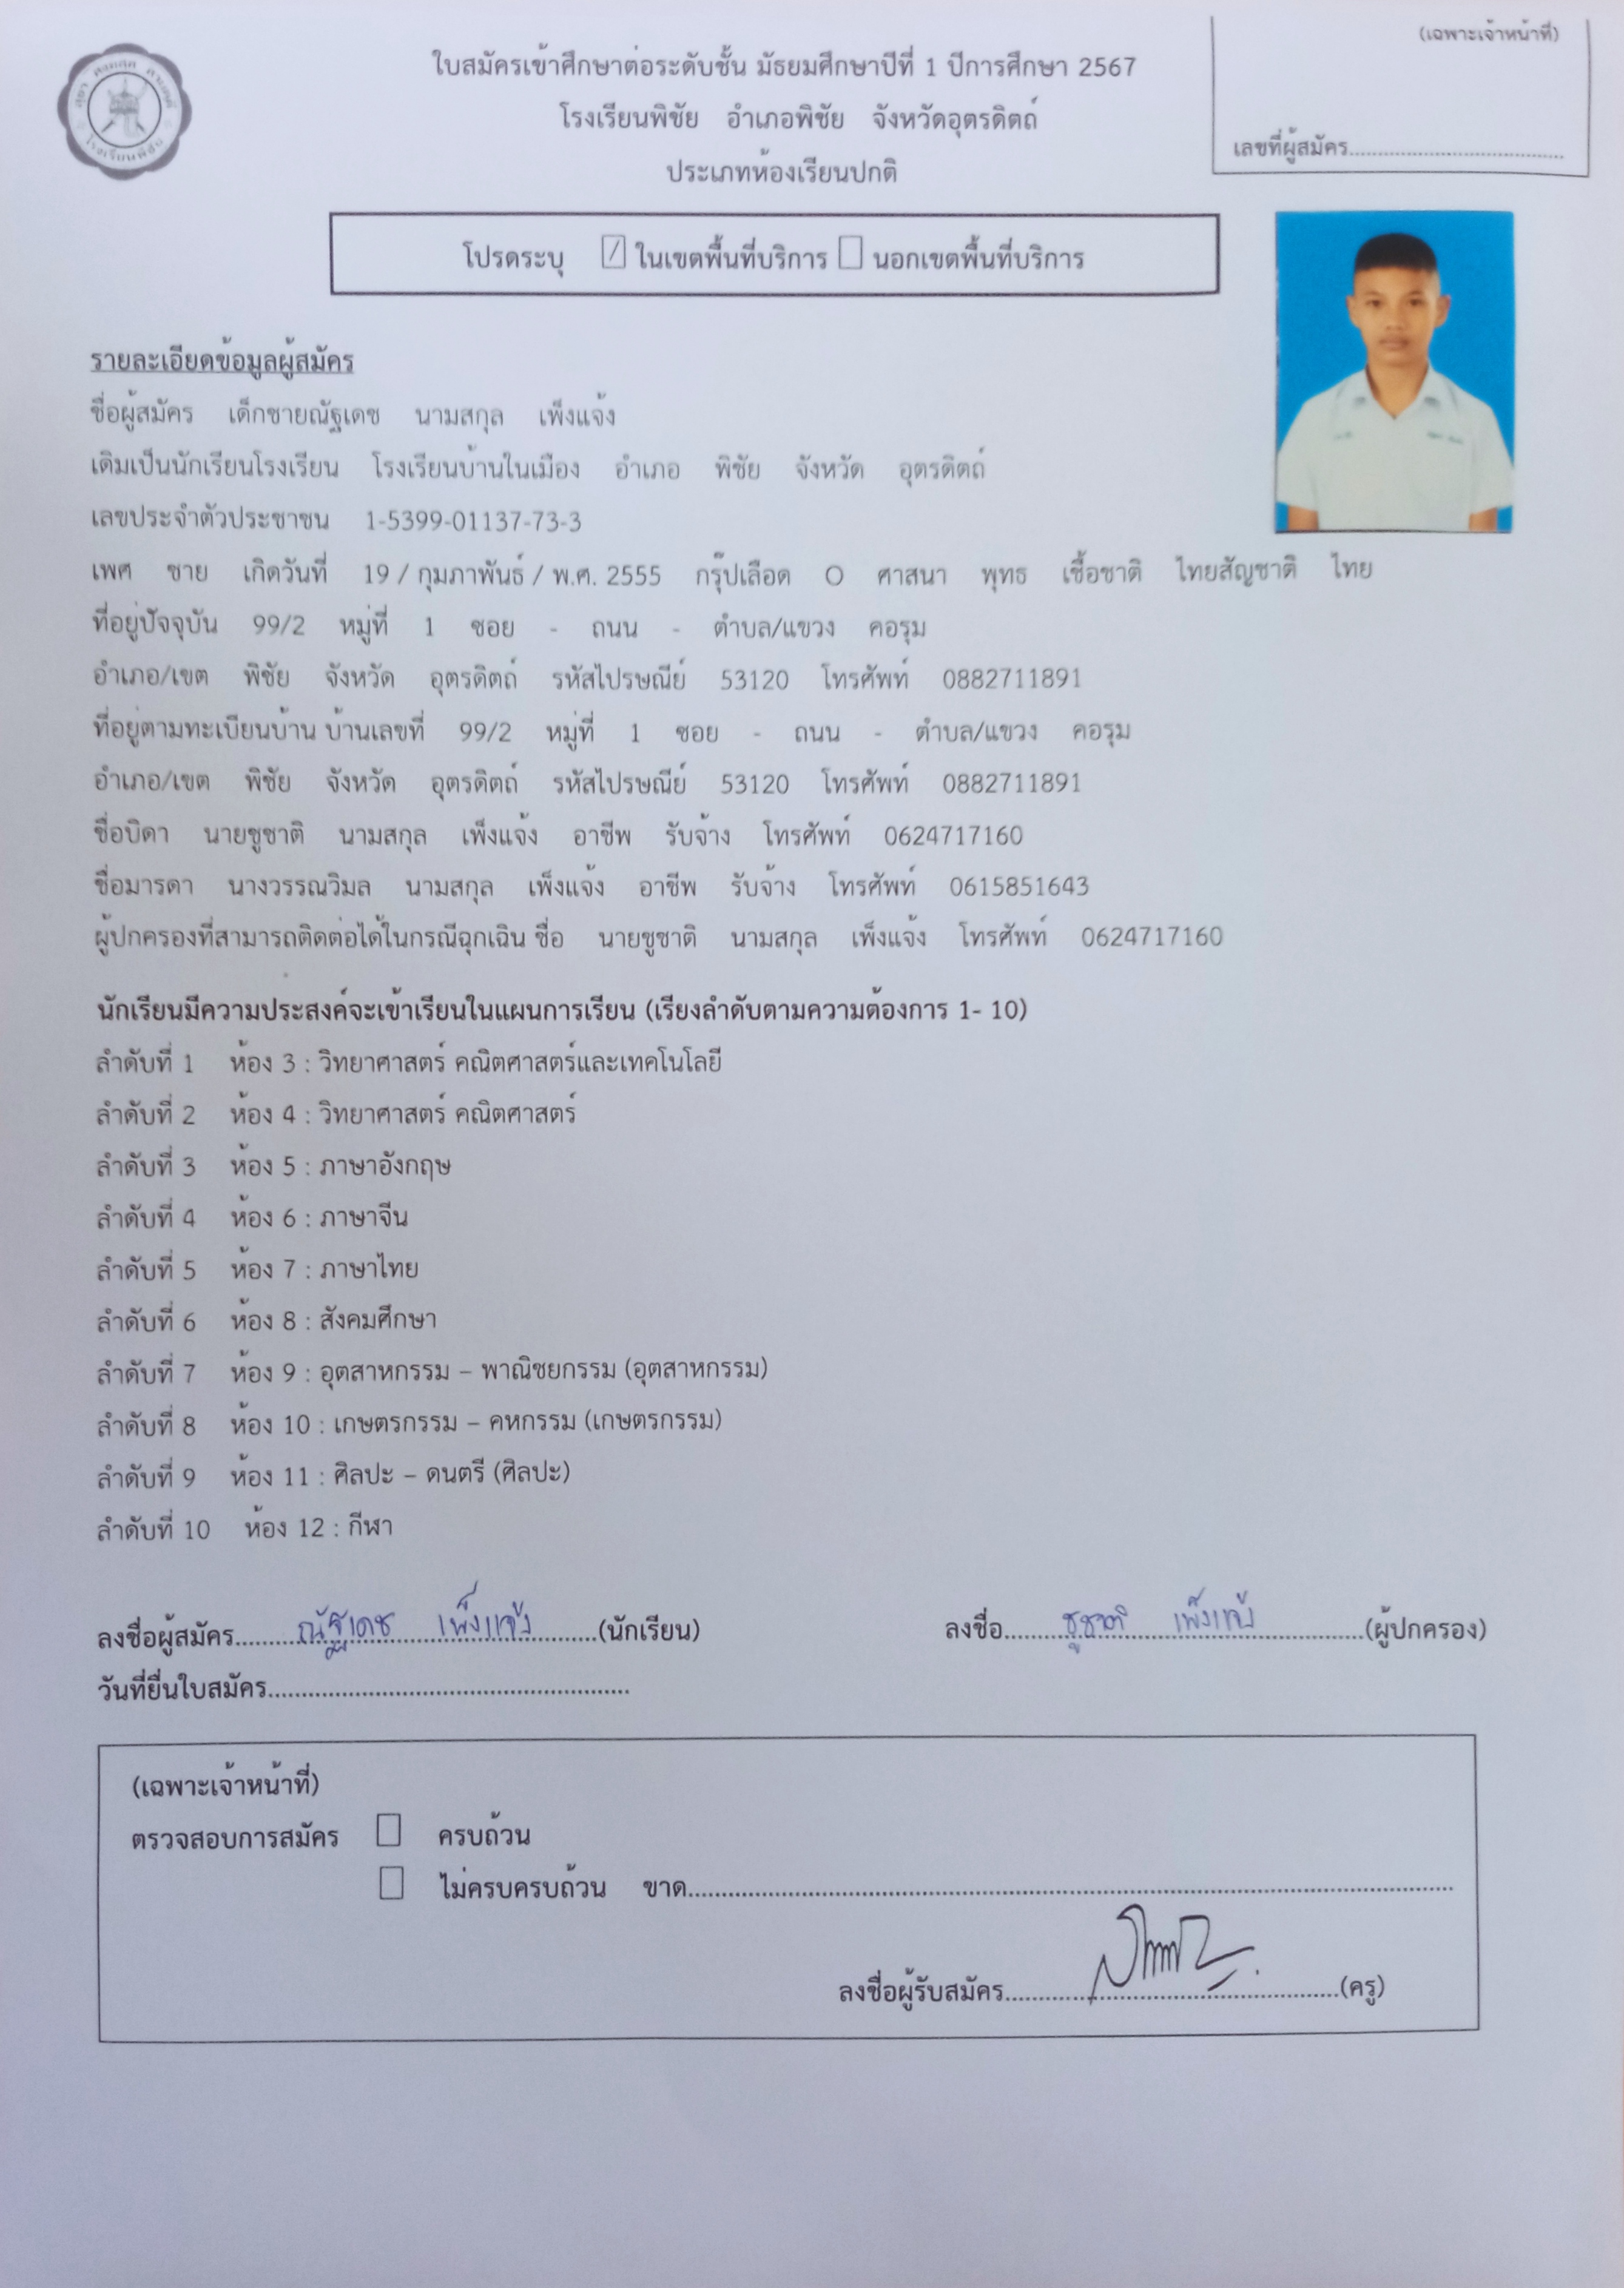 (เฉพาะเจ้าหน้าที่)
ใบสมัครเข้าศึกษาต่อระดับชั้น มัธยมศึกษาปีที่ 1 ปีการศึกษา 2567
โรงเรียนพิชัย อำเภอพิชัย จังหวัดอุตรดิตถ์
เลขที่ผู้สมัคร........................................
ประเภทห้องเรียนปกติ
โรงเรียนพิชัย
โปรดระบุ ☑ ในเขตพื้นที่บริการ ☐ นอกเขตพื้นที่บริการ
รายละเอียดข้อมูลผู้สมัคร
ชื่อผู้สมัคร เด็กชายณัฐเดช นามสกุล เพ็งแจ้ง
เดิมเป็นนักเรียนโรงเรียน โรงเรียนบ้านในเมือง อำเภอ พิชัย จังหวัด อุตรดิตถ์
เลขประจำตัวประชาชน 1-5399-01137-73-3
เพศ ชาย เกิดวันที่ 19 / กุมภาพันธ์ / พ.ศ. 2555 กรุ๊ปเลือด O ศาสนา พุทธ เชื้อชาติ ไทยสัญชาติ ไทย
ที่อยู่ปัจจุบัน 99/2 หมู่ที่ 1 ซอย - ถนน - ตำบล/แขวง คอรุม
อำเภอ/เขต พิชัย จังหวัด อุตรดิตถ์ รหัสไปรษณีย์ 53120 โทรศัพท์ 0882711891
ที่อยู่ตามทะเบียนบ้าน บ้านเลขที่ 99/2 หมู่ที่ 1 ซอย - ถนน - ตำบล/แขวง คอรุม
อำเภอ/เขต พิชัย จังหวัด อุตรดิตถ์ รหัสไปรษณีย์ 53120 โทรศัพท์ 0882711891
ชื่อบิดา นายชูชาติ นามสกุล เพ็งแจ้ง อาชีพ รับจ้าง โทรศัพท์ 0624717160
ชื่อมารดา นางวรรณวิมล นามสกุล เพ็งแจ้ง อาชีพ รับจ้าง โทรศัพท์ 0615851643
ผู้ปกครองที่สามารถติดต่อได้ในกรณีฉุกเฉิน ชื่อ นายชูชาติ นามสกุล เพ็งแจ้ง โทรศัพท์ 0624717160
นักเรียนมีความประสงค์จะเข้าเรียนในแผนการเรียน (เรียงลำดับตามความต้องการ 1- 10)
ลำดับที่ 1 ห้อง 3 : วิทยาศาสตร์ คณิตศาสตร์และเทคโนโลยี
ลำดับที่ 2 ห้อง 4 : วิทยาศาสตร์ คณิตศาสตร์
ลำดับที่ 3 ห้อง 5 : ภาษาอังกฤษ
ลำดับที่ 4 ห้อง 6 : ภาษาจีน
ลำดับที่ 5 ห้อง 7 : ภาษาไทย
ลำดับที่ 6 ห้อง 8 : สังคมศึกษา
ลำดับที่ 7 ห้อง 9 : อุตสาหกรรม – พาณิชยกรรม (อุตสาหกรรม)
ลำดับที่ 8 ห้อง 10 : เกษตรกรรม – คหกรรม (เกษตรกรรม)
ลำดับที่ 9 ห้อง 11 : ศิลปะ – ดนตรี (ศิลปะ)
ลำดับที่ 10 ห้อง 12 : กีฬา
ลงชื่อผู้สมัคร.........ณัฐเดช เพ็งแจ้ง.........(นักเรียน) ลงชื่อ.........ชูชาติ เพ็งแจ้ง.........(ผู้ปกครอง)
วันที่ยื่นใบสมัคร......................................................
(เฉพาะเจ้าหน้าที่)
ตรวจสอบการสมัคร ☐ ครบถ้วน
☐ ไม่ครบครบถ้วน ขาด..............................................................................
ลงชื่อผู้รับสมัคร..................................................(ครู)